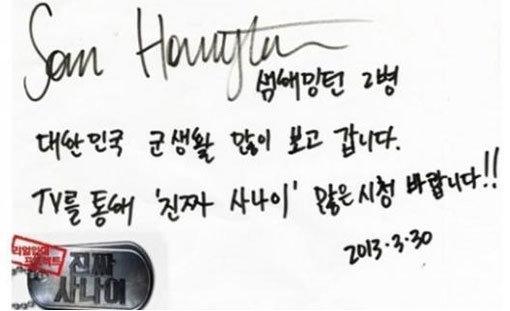 Sam Hamington
샘해밍턴 2병
대한민국 군생활 많이 보고 갑니다.
TV를 통해 '진짜 사나이' 많은 시청 바랍니다!!
2013·3·30
리얼입대
프로젝트
진짜
사나이